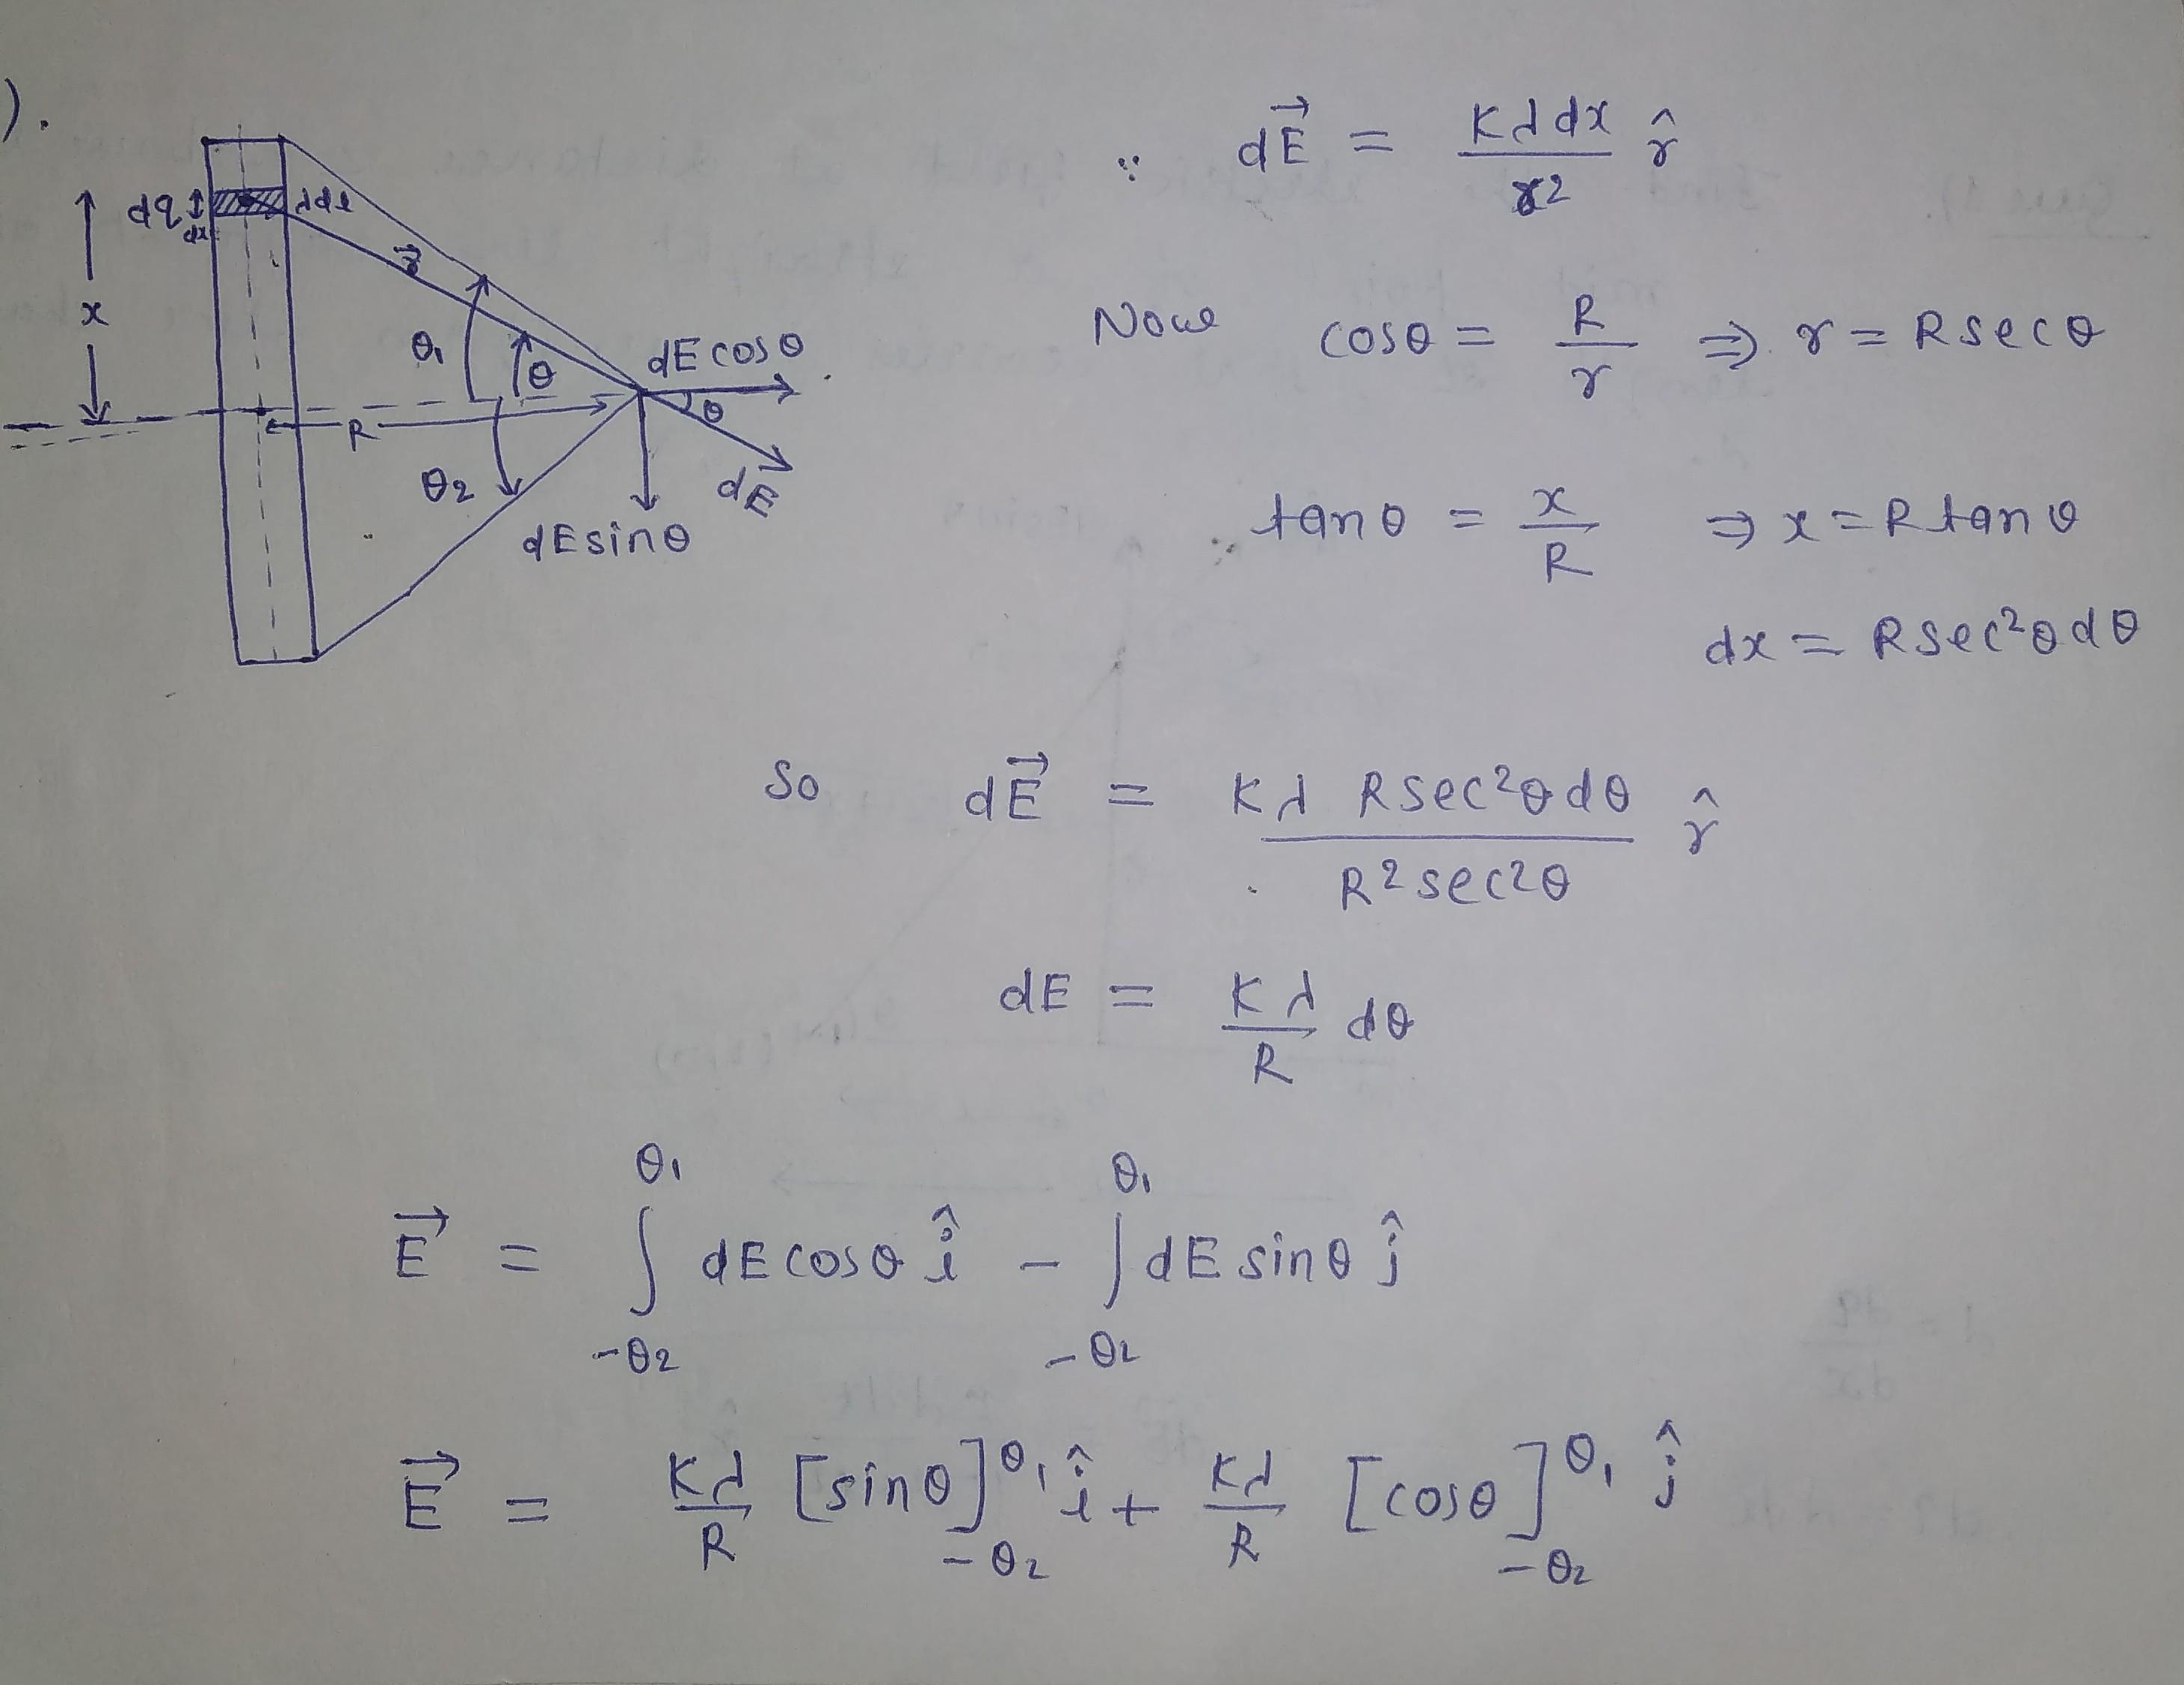 ).
dq
dx
λdl
x
r⃗
θ₁
θ
R
θ₂
dE cosθ
θ
dE⃗
dE sinθ
∵ dE⃗ = Kλdx / r² r̂
Now cosθ = R / r ⇒ r = R secθ
tanθ = x / R ⇒ x = R tanθ
dx = R sec²θ dθ
So dE⃗ = Kλ R sec²θ dθ / R² sec²θ r̂
dE = Kλ / R dθ
E⃗ = ∫_{-θ₂}^{θ₁} dE cosθ î − ∫_{-θ₂}^{θ₁} dE sinθ ĵ
E⃗ = Kλ / R [sinθ]_{-θ₂}^{θ₁} î + Kλ / R [cosθ]_{-θ₂}^{θ₁} ĵ